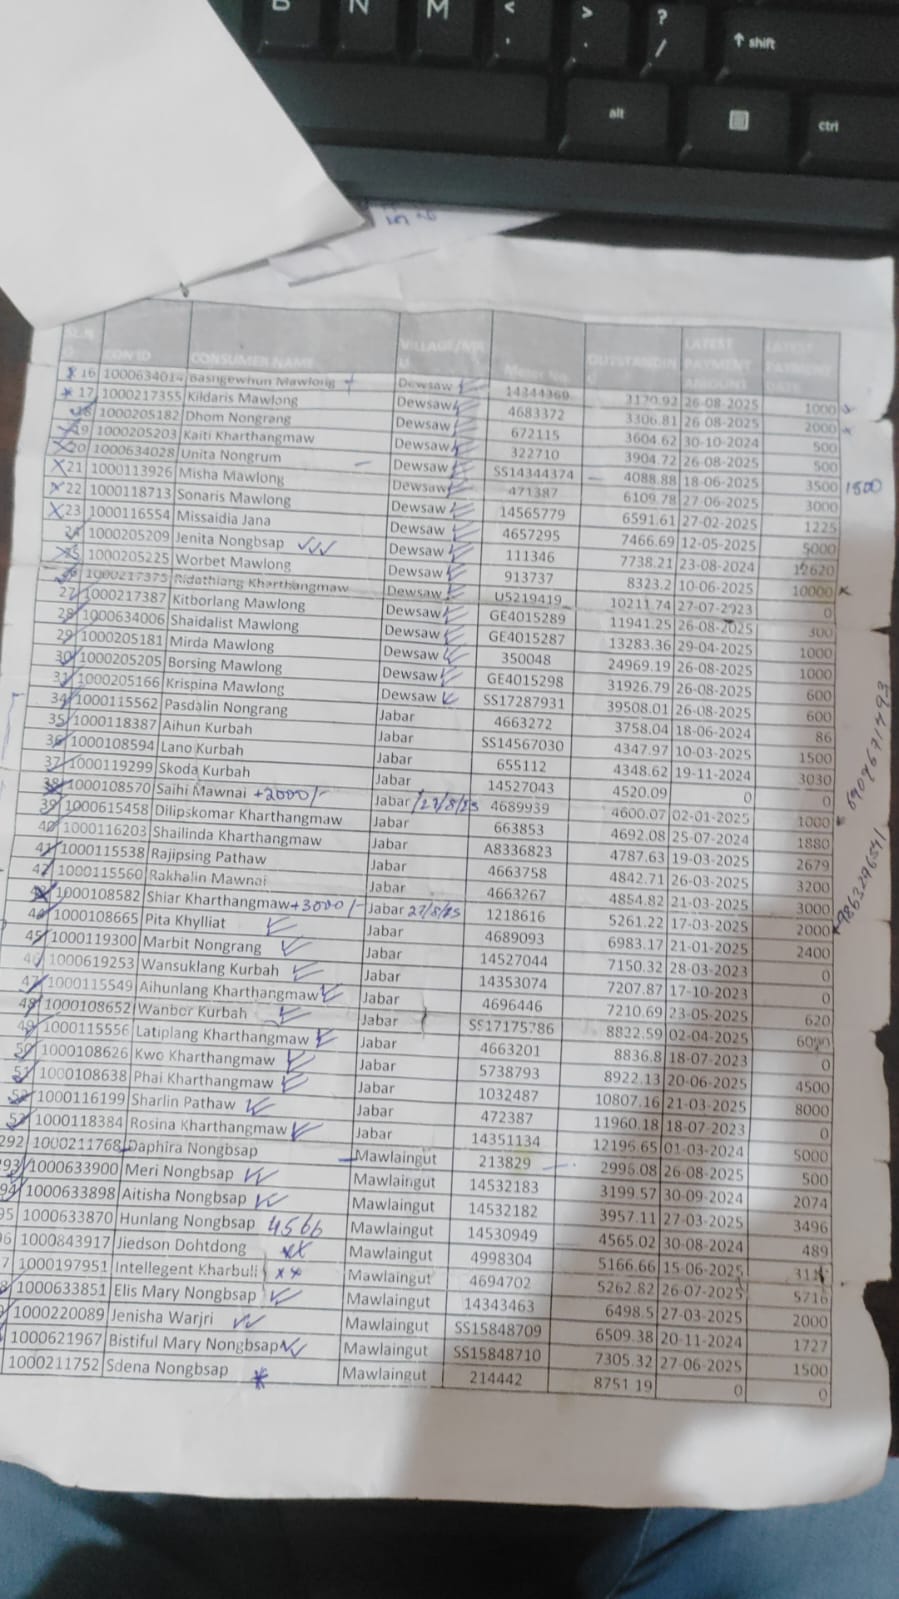 B N M < , > . ? / ↑ shift
alt ctrl
CON ID CONSUMER NAME VILLAGE/MRU Meter No OUTSTANDING LATEST PAYMENT AMOUNT LATEST PAYMENT DATE
16 1000634014 Basngewhun Mawlong Dewsaw 14344369 3170.92 26-08-2025 1000
17 1000217355 Kildaris Mawlong Dewsaw 4683372 3306.81 26-08-2025 2000
18 1000205182 Dhom Nongrang Dewsaw 672115 3604.62 30-10-2024 500
19 1000205203 Kaiti Kharthangmaw Dewsaw 322710 3904.72 26-08-2025 500
20 1000634028 Unita Nongrum Dewsaw SS14344374 4088.88 18-06-2025 3500 1500
21 1000113926 Misha Mawlong Dewsaw 471387 6109.78 27-06-2025 3000
22 1000118713 Sonaris Mawlong Dewsaw 14565779 6591.61 27-02-2025 1225
23 1000116554 Missaidia Jana Dewsaw 4657295 7466.69 12-05-2025 5000
24 1000205209 Jenita Nongbsap Dewsaw 111346 7738.21 23-08-2024 12620
25 1000205225 Worbet Mawlong Dewsaw 913737 8323.2 10-06-2025 10000
26 1000217375 Ridathiang Kharthangmaw Dewsaw U5219419 10211.74 27-07-2923 0
27 1000217387 Kitborlang Mawlong Dewsaw GE4015289 11941.25 26-08-2025 300
28 1000634006 Shaidalist Mawlong Dewsaw GE4015287 13283.36 29-04-2025 1000
29 1000205181 Mirda Mawlong Dewsaw 350048 24969.19 26-08-2025 1000
30 1000205205 Borsing Mawlong Dewsaw GE4015298 31926.79 26-08-2025 600
31 1000205166 Krispina Mawlong Dewsaw SS17287931 39508.01 26-08-2025 600
34 1000115562 Pasdalin Nongrang Jabar 4663272 3758.04 18-06-2024 86
35 1000118387 Aihun Kurbah Jabar SS14567030 4347.97 10-03-2025 1500
36 1000108594 Lano Kurbah Jabar 655112 4348.62 19-11-2024 3030
37 1000119299 Skoda Kurbah Jabar 14527043 4520.09 0 0
38 1000108570 Saihi Mawnai +2000/- Jabar /27/8/25 4689939 4600.07 02-01-2025 1000
39 1000615458 Dilipskomar Kharthangmaw Jabar 663853 4692.08 25-07-2024 1880
40 1000116203 Shailinda Kharthangmaw Jabar A8336823 4787.63 19-03-2025 2679
41 1000115538 Rajipsing Pathaw Jabar 4663758 4842.71 26-03-2025 3200
42 1000115560 Rakhalin Mawnai Jabar 4663267 4854.82 21-03-2025 3000
43 1000108582 Shiar Kharthangmaw +3000/- Jabar 27/8/25 1218616 5261.22 17-03-2025 2000
44 1000108665 Pita Khylliat Jabar 4689093 6983.17 21-01-2025 2400
45 1000119300 Marbit Nongrang Jabar 14527044 7150.32 28-03-2023 0
46 1000619253 Wansuklang Kurbah Jabar 14353074 7207.87 17-10-2023 0
47 1000115549 Aihunlang Kharthangmaw Jabar 4696446 7210.69 23-05-2025 620
48 1000108652 Wanbor Kurbah Jabar SS17175786 8822.59 02-04-2025
49 1000115556 Latiplang Kharthangmaw Jabar 4663201 8836.8 18-07-2023 0
50 1000108626 Kwo Kharthangmaw Jabar 5738793 8922.13 20-06-2025 4500
51 1000108638 Phai Kharthangmaw Jabar 1032487 10807.16 21-03-2025 8000
52 1000116199 Sharlin Pathaw Jabar 472387 11960.18 18-07-2023 0
53 1000118384 Rosina Kharthangmaw Jabar 14351134 12196.65 01-03-2024 5000
292 1000211768 Daphira Nongbsap Mawlaingut 213829 2996.08 26-08-2025 500
293 1000633900 Meri Nongbsap Mawlaingut 14532183 3199.57 30-09-2024 2074
94 1000633898 Aitisha Nongbsap Mawlaingut 14532182 3957.11 27-03-2025 3496
95 1000633870 Hunlang Nongbsap 4566 Mawlaingut 14530949 4565.02 30-08-2024 489
96 1000843917 Jiedson Dohtdong Mawlaingut 4998304 5166.66 15-06-2025
7 1000197951 Intellegent Kharbuli xx Mawlaingut 4694702 5262.82 26-07-2025 5716
1000633851 Elis Mary Nongbsap Mawlaingut 14343463 6498.5 27-03-2025 2000
1000220089 Jenisha Warjri Mawlaingut SS15848709 6509.38 20-11-2024 1727
1000621967 Bistiful Mary Nongbsap Mawlaingut SS15848710 7305.32 27-06-2025 1500
1000211752 Sdena Nongbsap Mawlaingut 214442 8751.19 0 0
6909671493
9863296541